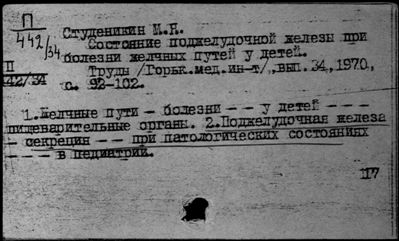 П
442/34
Студеникин М.Я.
Состояние поджелудочной железы при
болезни желчных путей у детей.
П
442/34
Труды /Горьк.мед.ин-т/,,вып.34,,1970,
с. 92-102.
1.Желчные пути - болезни - - у детей - - -
пищеварительные органы. 2.Поджелудочная железа
- секреция - - - при патологических состояниях
- - - - в педиатрии.
117